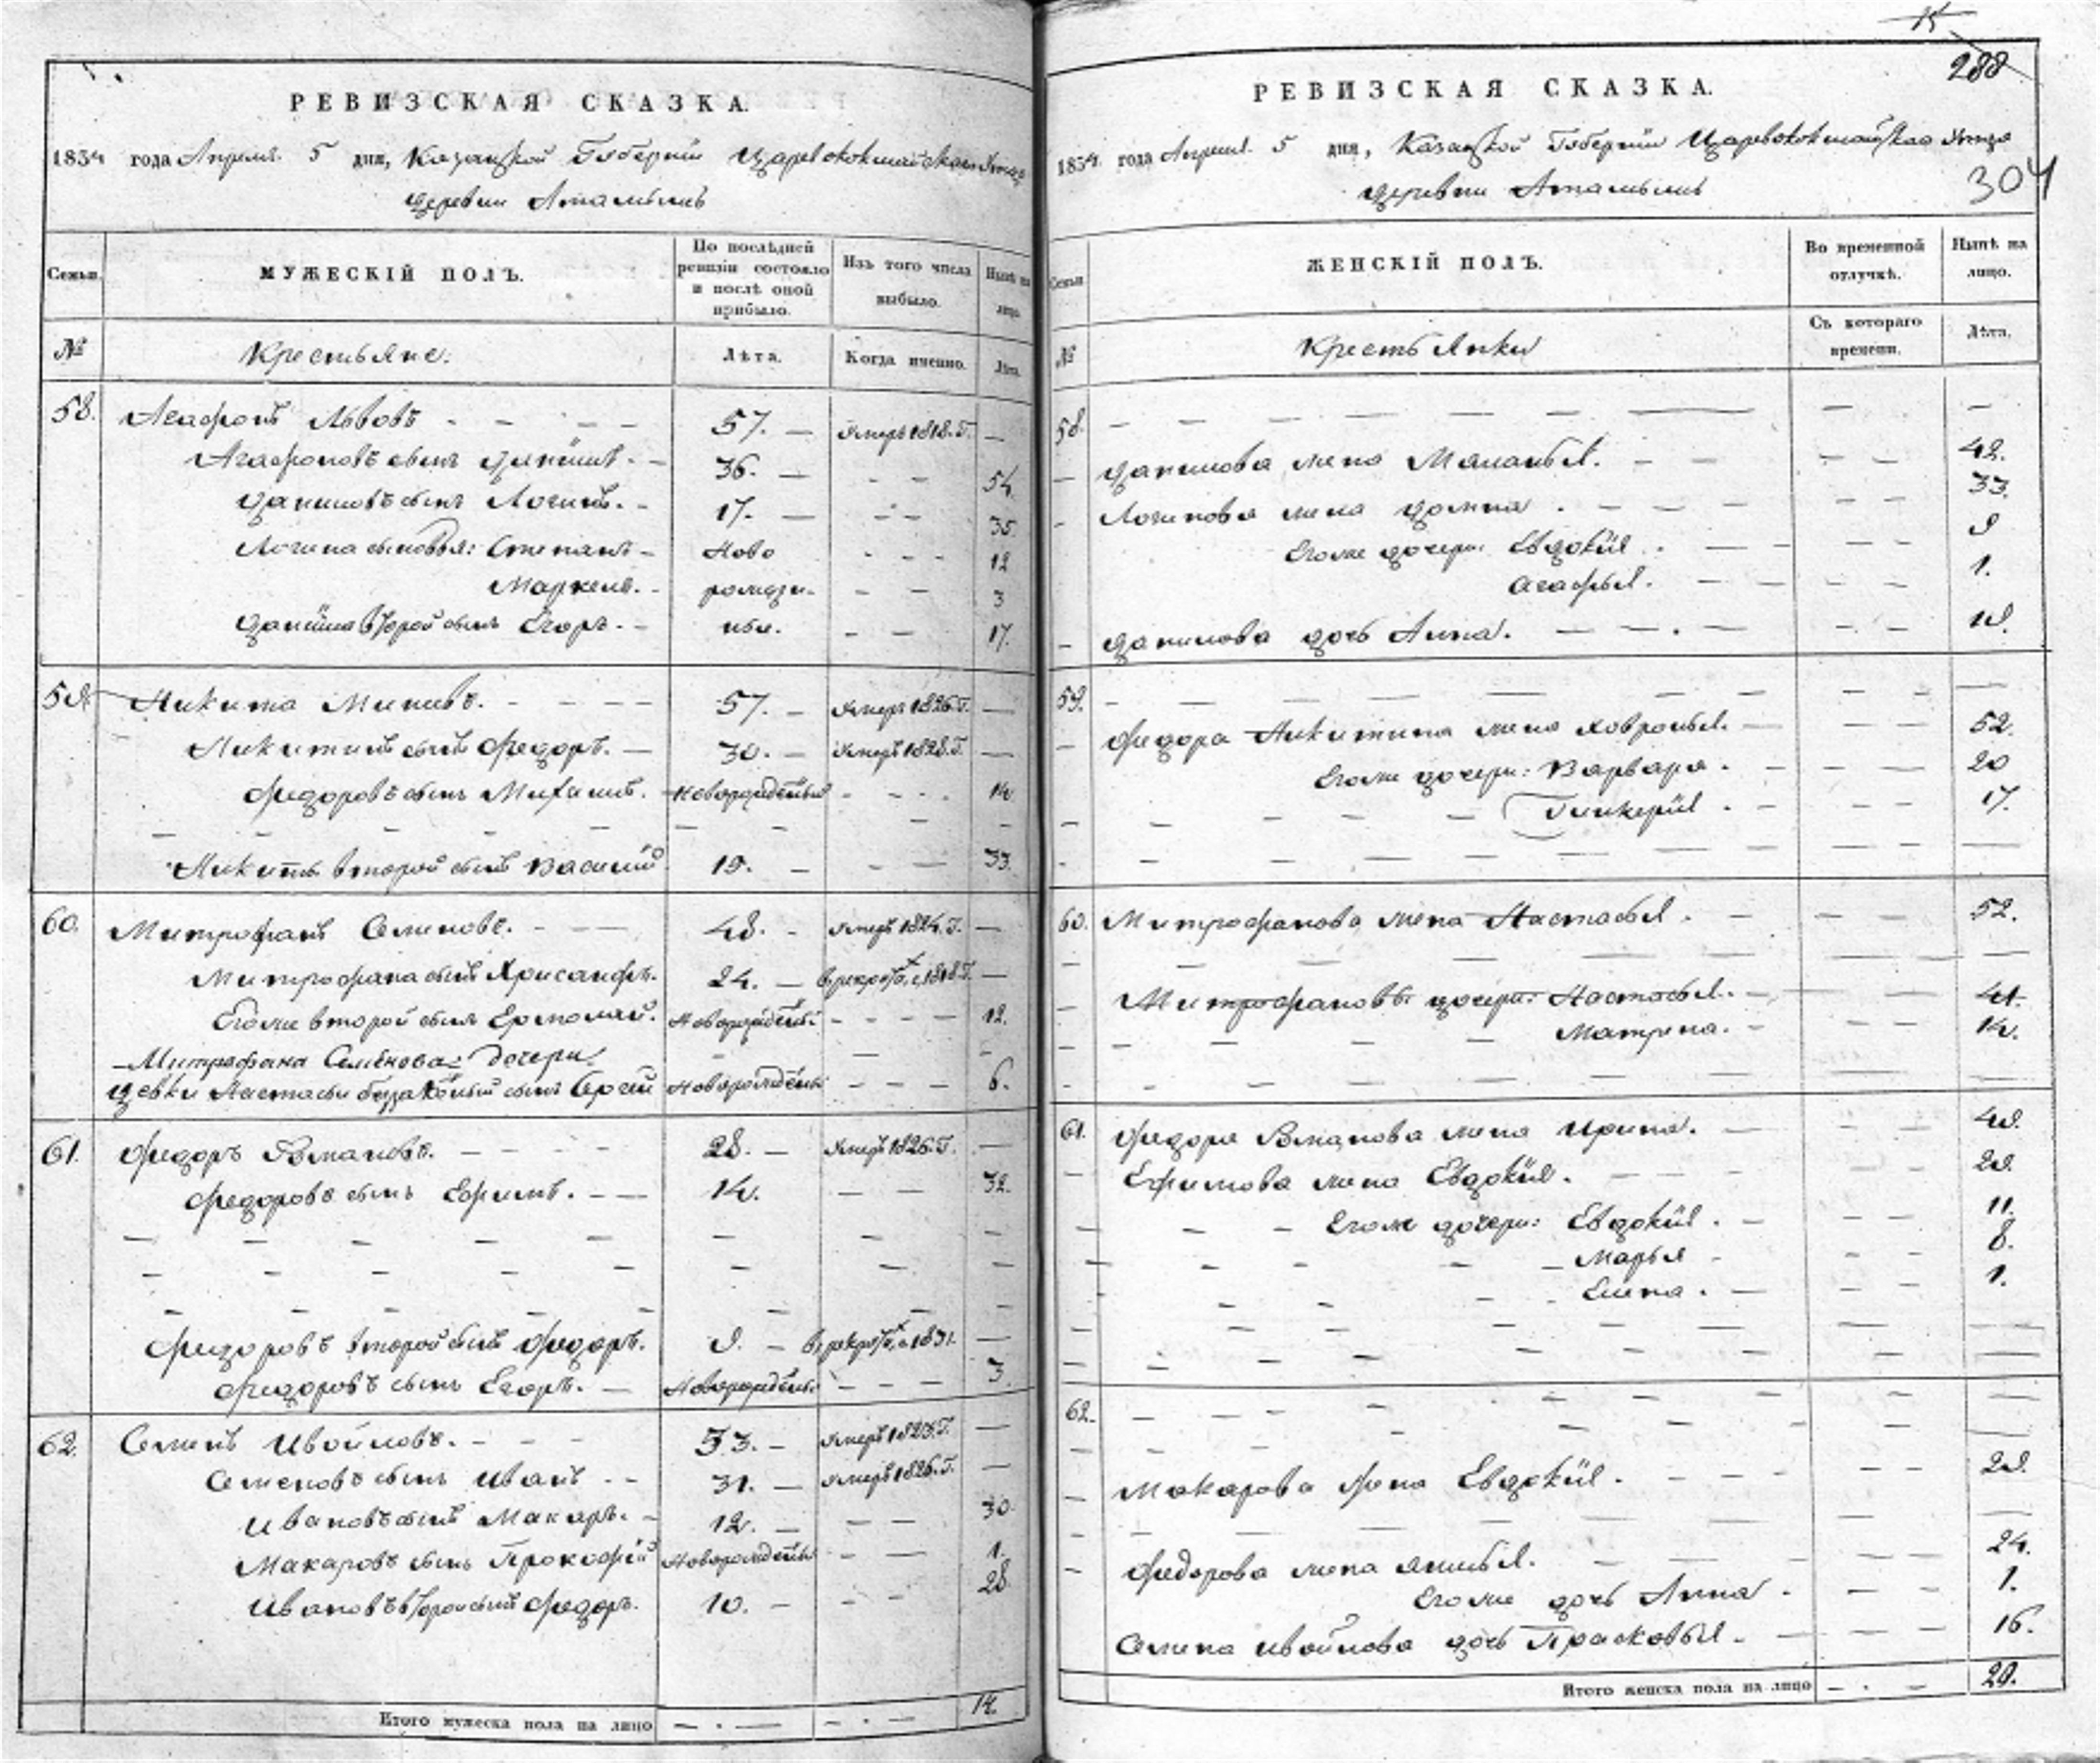 РЕВИЗСКАЯ СКАЗКА.
1834 года Апреля 5 дня, Казанской Губернiи Царевококшайскаго Уезда
деревни
Семьи.
МУЖЕСКIЙ ПОЛЪ.
По послѣдней ревизiи состояло и послѣ оной прибыло.
Изъ того числа выбыло.
Нынѣ на лицо.
№
Крестьяне.
Лѣта.
Когда именно.
Лѣта.
58. Агафонъ Львовъ 57. Умеръ 1818. Г.
Агафоновъ сынъ Данiилъ. 36. 54.
Даниловъ сынъ Логинъ. 17. 35.
Логина сыновья: Степанъ Ново 12
Маркелъ. рожден- 3
Данiила второй сынъ Егоръ. ные. 17.
59. Никита Минѣевъ. 57. Умеръ 1826. Г.
Никитинъ сынъ Федоръ. 30. Умеръ 1828. Г.
Федоровъ сынъ Новорожденный 14
Никиты второй сынъ Василiй 19. 33.
60. Митрофанъ Семеновъ. 48. Умеръ 1824. Г.
Митрофана сынъ Хрисанфъ. 24. в рекруты с 1818. Г.
Егоже второй сынъ Ермолай. Новорожденный 12.
Митрофана Семёнова: дочери
девки Настасьи беззаконый сынъ Сергей Новорожденный 6.
61. Федоръ 28. Умеръ 1826. Г.
Федоровъ сынъ Ефимъ. 14. 32.
Федоровъ второй сынъ Федоръ. 9. в рекруты с 1831.
Федоровъ сынъ Егоръ. Новорожденный 3.
62. Семенъ Ивойловъ. 53. Умеръ 1823. Г.
Семеновъ сынъ Иванъ 31. Умеръ 1826. Г.
Ивановъ сынъ Макаръ. 12. 30.
Макаровъ сынъ Прокофiй Новорожденный 1.
Ивановъ второй сынъ Федоръ. 10. 28
Итого мужеска пола на лицо 14.
15
288
РЕВИЗСКАЯ СКАЗКА.
1834. года Апреля. 5 дня, Казанской Губернiи Царевококшайскаго Уезда
деревни
304
Семьи
ЖЕНСКIЙ ПОЛЪ.
Во временной отлучкѣ.
Нынѣ на лицо.
№
Крестьянки
Съ котораго времени.
Лѣта.
58.
Данилова жена Маланья. 42.
Логинова жена Домна. 33.
Егоже дочери: Евдокiя. 9
Агафья. 1.
Данилова дочь Анна. 19.
59.
Федора Никитина жена Ховронья. 52.
Егоже дочери: Варвара. 20
Гликерiя. 17.
60. Митрофанова жена Настасья. 52.
Митрофановы дочери: Настасья. 41.
Матрена. 14.
61. Федора жена Ирина. 49.
Ефимова жена Евдокiя. 29.
Егоже дочери: Евдокiя. 11.
Марья 8.
Елена. 1.
62.
Макарова жена Евдокiя. 29.
Федорова жена 24.
Егоже дочь Анна. 1.
Семена Ивойлова дочь Прасковья. 16.
Итого женска пола на лицо 20.